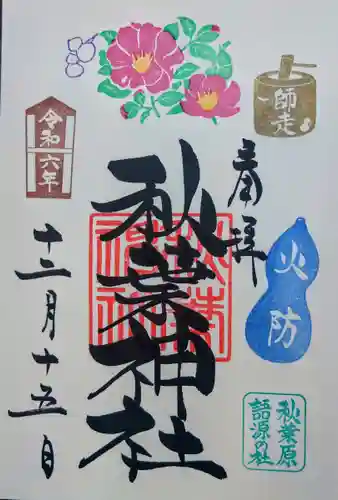 奉拝
秋葉神社
令和六年
十二月十五日
師走
火防
秋葉原
語源の社